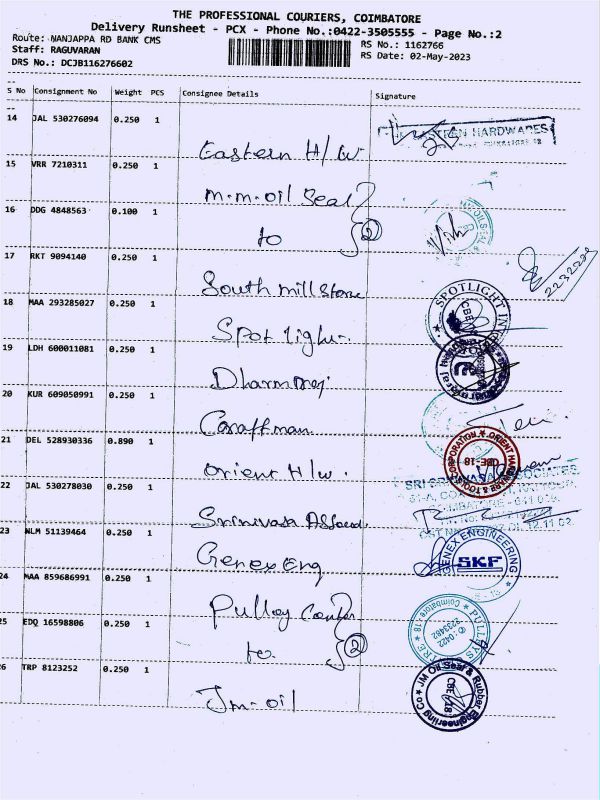 THE PROFESSIONAL COURIERS, COIMBATORE
Delivery Runsheet - PCX - Phone No.:0422-3505555 - Page No.:2
Route: NANJAPPA RD BANK CMS
RS No.: 1162766
Staff: RAGUVARAN
RS Date: 02-May-2023
DRS No.: DCJB116276602
S No Consignment No Weight PCS Consignee Details Signature
14 JAL 530276094 0.250 1
EASTERN HARDWARES
Eastern H/W.
15 VRR 7210311 0.250 1
M.M.Oil Seal
16 DDG 4848563 0.100 1
to 2
17 RKT 9094140 0.250 1
South Mill Store
18 MAA 293285027 0.250 1
SPOTLIGHT IN
CBE
Spot light.
19 LDH 600011081 0.250 1
20 KUR 609050991 0.250 1
21 DEL 528930336 0.890 1
CORPORATION ★ ORIENT HARDWARE & TOOLS
CBE-18
Orient H/W.
22 JAL 530278030 0.250 1
Srinivasa Assoc.
23 NLM 51139464 0.250 1
GENEX ENGINEERING
SKF
Genex Eng
24 MAA 859686991 0.250 1
Pulley Centre
25 EDQ 16598806 0.250 1
PULLEYS
Coimbatore-18
0422
to 2
26 TRP 8123252 0.250 1
JM Oil Seal & Rubber Engineering Co
CBE 18
Jm-oil